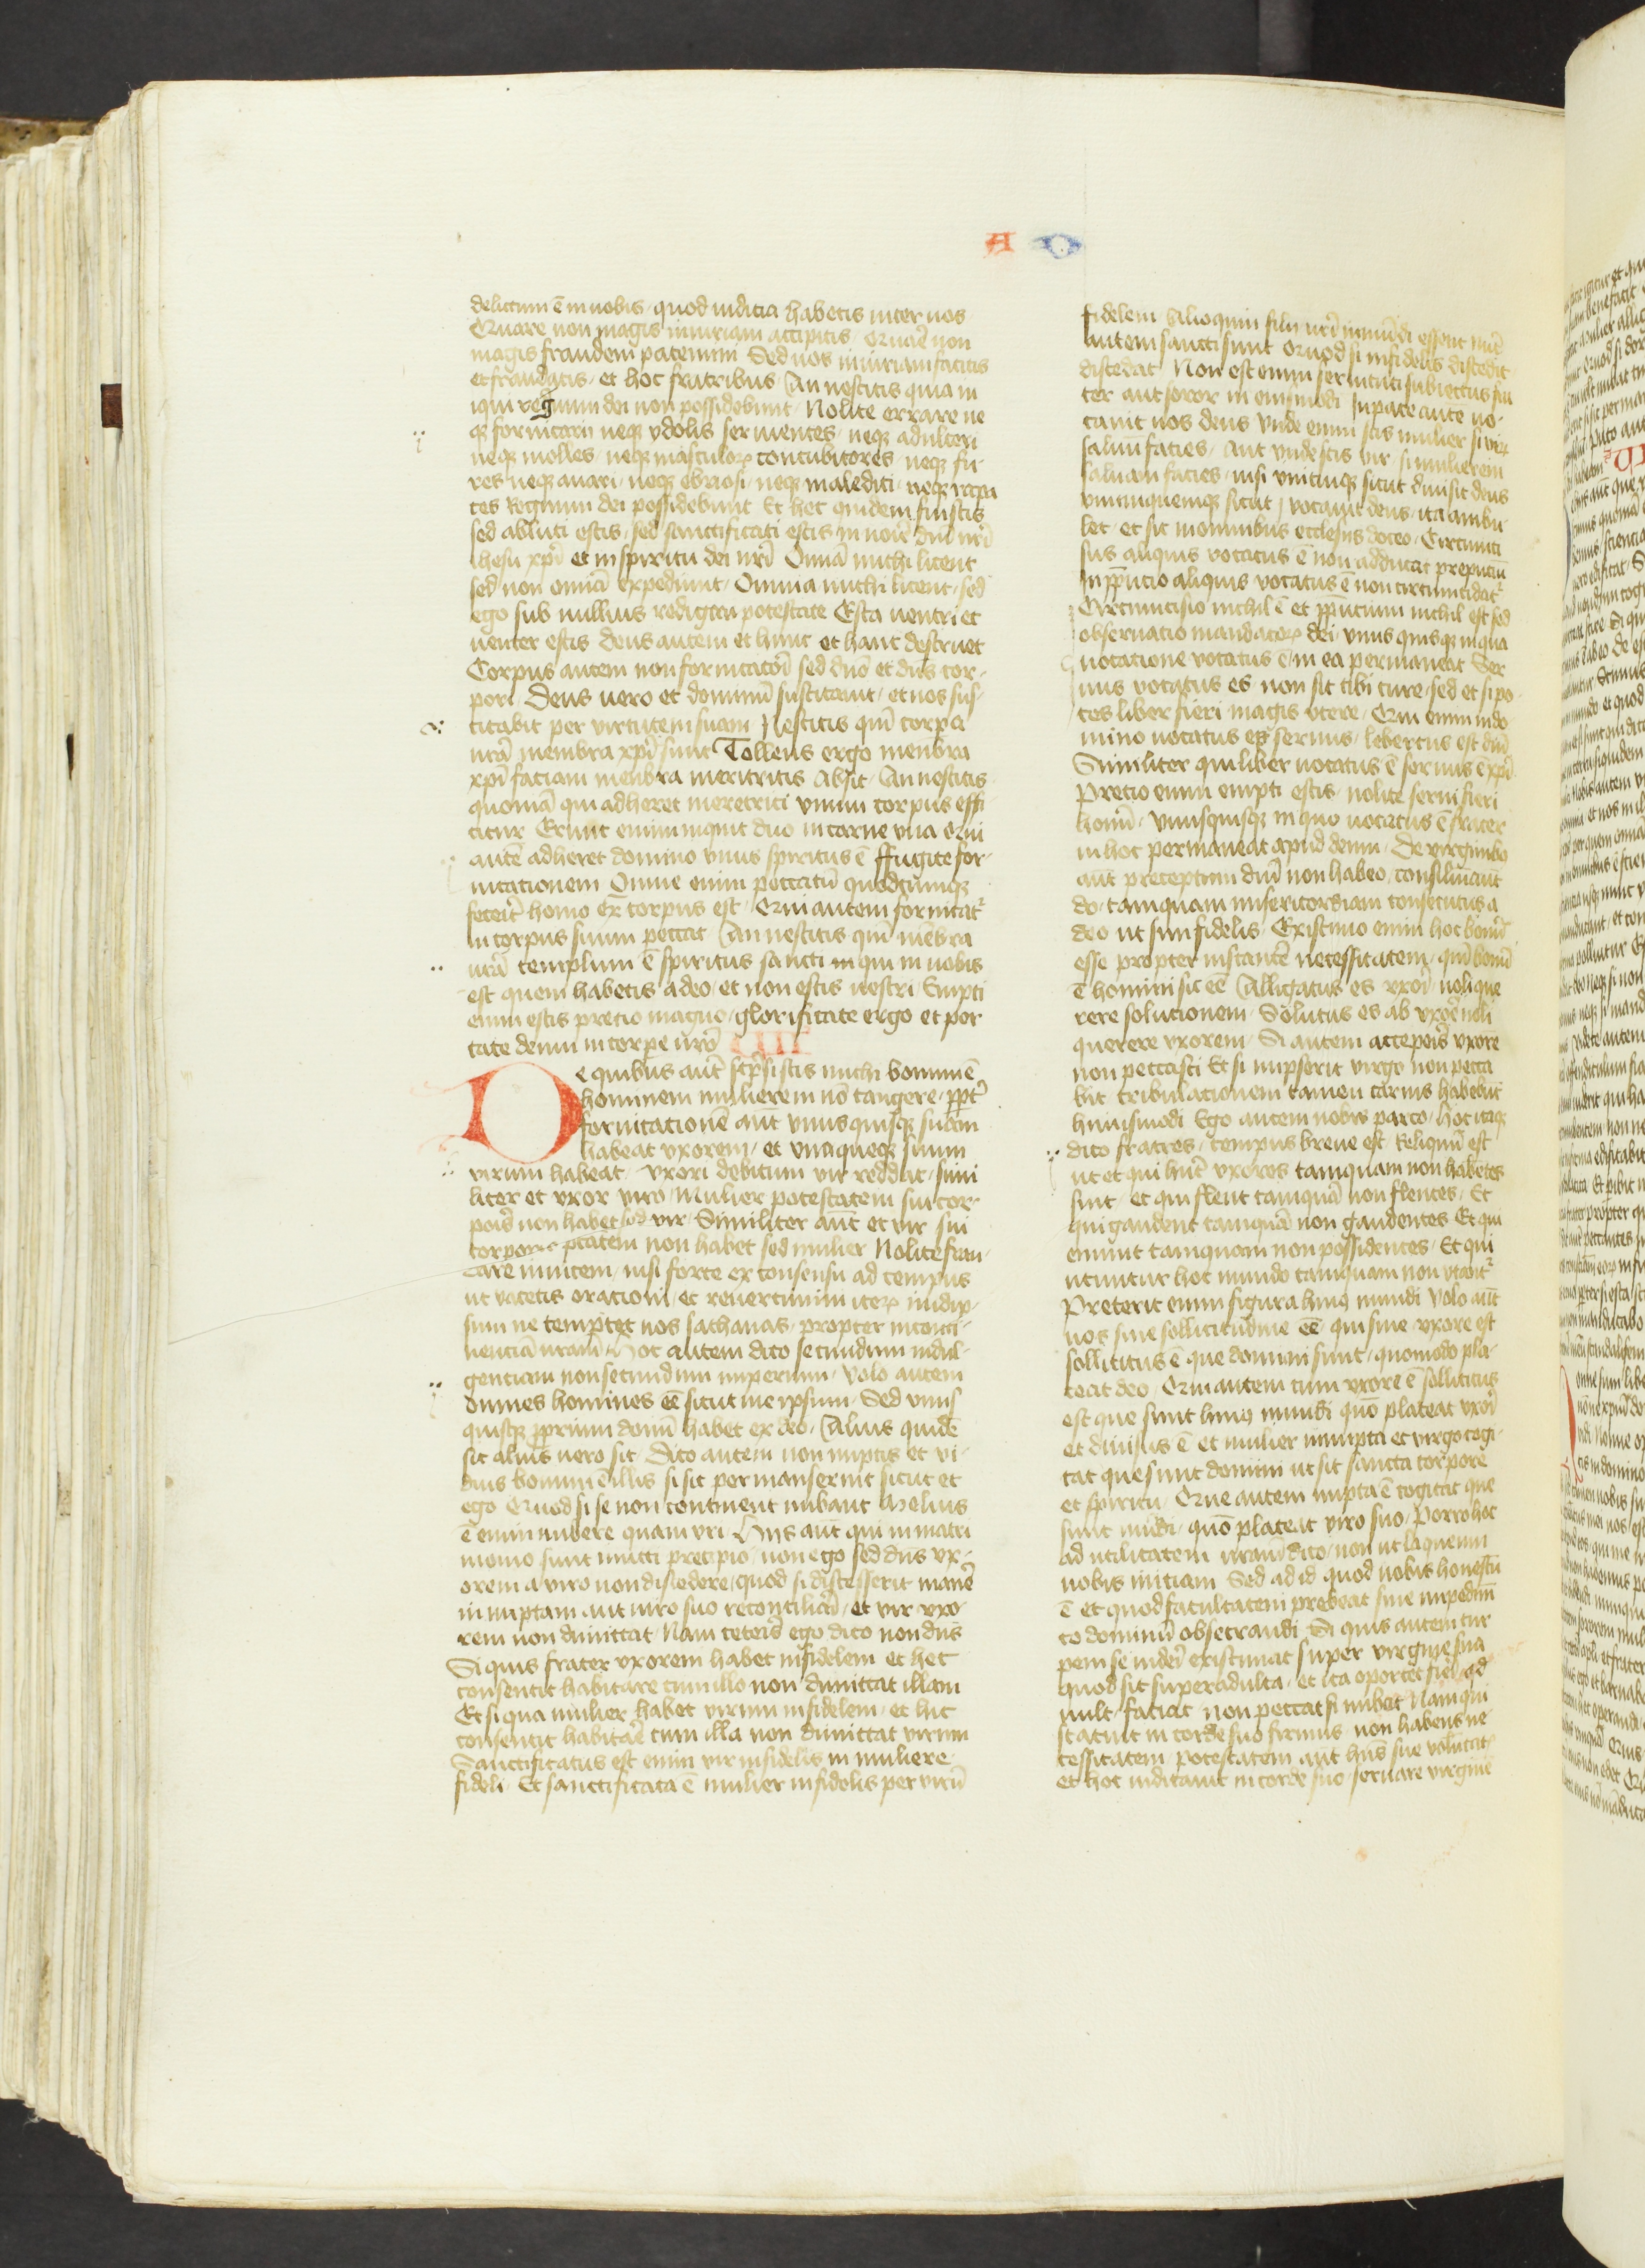 A O
delictum ē in uobis quod iudicia habetis inter uos
Quare non magis iniuriam accipitis Quarē non
magis fraudem patemini Sed uos iniuriam facitis
et fraudatis et hoc fratribus An nescitis quia in
iqui regnum dei non possidebunt Nolite errare ne
qꝫ fornicarii neqꝫ ydolis seruientes neqꝫ adulteri
neqꝫ molles neqꝫ masculoꝝ concubitores neqꝫ fu
res neqꝫ auari neqꝫ ebriosi neqꝫ maledici neqꝫ rapa
ces Regnum dei possidebunt Et hec quidem fuistis
sed abluti estis sed sanctificati estis in noīe dnī nr̄i
ihesu xpī et in spiritu dei nr̄i Omnā michi licent
sed non omnīa expediunt Omnia michi licent sed
ego sub nullius redigar potestate Esca uentri et
uenter escis deus autem et hunc et hanc destruet
Corpus autem non fornicatōi sed dnō et dn̄s cor
pori Deus uero et dominū suscitauit et nos sus
citabit per virtutem suam Nescitis qm̄ corpa
ur̄a membra xpī sunt Tollens ergo menbra
xpī faciam menbra meritricis Absit An nescitis
quoniā qui adheret meretrici vnum corpus effi
citur Erunt enim inquit duo in carne vna Qui
autē adheret domino vnus spiritus ē ffugite for
nicationem Omne enim peccatū quodcumqꝫ
feceīt homo ex̄ corpus est Qui autem fornicat᷑
in corpus suum peccat An nescitis qm̄ mēbra
ur̄a templum ē spiritus sancti in qui in uobis
est quem habetis a deo et non estis uestri Empti
enim estis precio magno glorificate ergo et por
tate deum in corpe ur̄o VII
De quibus aut̄ sc̄psistis michi bonum ē
hominem mulierem nō tangere ppt̄
fornicationē aut̄ vnusquisqꝫ suam
habeat vxorem et vnaqueqꝫ suum
virum habeat vxori debitum vir reddat simi
liter et vxor viro Mulier potestatem sui cor
pois non habet sed vir Similiter aut̄ et vir sui
corporis ptatem non habet sed mulier Nolite frau
dare inuicem nisi forte ex consensu ad tempus
ut vacetis orationi et reuertimini iteꝝ in idip
sum ne temptet uos sathanas propter inconti
nenciā uram Hoc autem dico secundum indul
genciam non secundum imperium Volo autem
omnes homines eē sicut me ipsum Sed vnus
quisqꝫ pprium donū habet ex deo Alius quidē
sic alius uero sic Dico autem non nuptis et vi
duis bonum ē illis si sic permanserint sicut et
ego Quod si se non continent nubant Melius
ē enim nubere quam vri Hijs aut̄ qui in matri
monio sunt iuncti precipio non ego sed dn̄s vx
orem a viro non discedere quod si discesserit manē
in nuptam aut viro suo reconciliari et vir vxo
rem non dimittat Nam ceteris ego dico non dn̄s
Si quis frater vxorem habet infidelem et hec
consentit habitare cum illo non dimittat illam
Et si qua mulier habet virum infidelem et hic
consentit habitaē cum illa non dimittat virum
Sanctificatus est enim vir infidelis in muliere
fideli Et sanctificata ē mulier infidelis per virū
fidelem Alioquin filii ur̄i inmūdi essent nūc
autem sancti sunt Quod si infidelis discedit
discedat Non est enim seruituti subiectus fra
ter aut soror in eiusmodi In pace aute uo
cauit nos deus Vnde enim scis mulier si virꝝ
saluū facies Aut vnde scis vir si mulierem
saluam facies nisi vnicuiqꝫ sicut diuisit deus
vnumquemqꝫ sicut vocauit deus ita ambu
let et sic in omnibus ecclesiis doceo Circumci
sus aliquis vocatus ē non adducat prepuciū
In ppucio aliquis vocatus ē non circumcidat᷑
Circumcisio nichil ē et ppucium nichil est sed
obseruatio mandatoꝝ dei vnus quisqꝫ in qua
uocatione vocatus ē in ea permaneat Ser
uus vocatus es non sit tibi cure sed et si po
tes liber fieri magis vtere Qui enim in do
mino uocatus est seruus libertus est dnī
Similiter qui liber uocatus ē seruus ē xpī
Precio enim empti estis nolite serui fieri
homī Vnusquisqꝫ in quo uocatus ē frater
in hoc permaneat apud deum De virginibꝫ
aut̄ preceptum dnī non habeo consiliū aut̄
do tamquam misericordiam consecutus a
deo ut sim fidelis Existimo enim hoc bonū
esse propter instantē necessitatem qm̄ bonū
ē homini sic eē Alligatus es vxoī noli que
rere solucionem Solutus es ab vxoē noli
querere vxorem Si autem acceperis vxorē
non peccasti Et si nupserit virgo non pecca
bit tribulacionem tamen carnis habebūt
huiusmodi Ego autem uobis parco Hoc itaqꝫ
dico fratres tempus breue est Reliquū est
ut et qui hn̄t vxores tamquam non habētes
sint et qui flent tamquā non flentes Et
qui gaudent tamquā non gaudentes Et qui
emunt tamquam non possidentes Et qui
utuntur hoc mundo tamquam non vtant᷑
Preterit enim figura huiꝰ mundi Volo aut̄
uos sine sollicitudine eē qui sine vxore est
sollicitus ē que domini sunt quomodo pla
ceat deo Qui autem cum vxore ē sollicitus
est que sunt huiꝰ mundi quō placeat vxorī
et diuisus ē et mulier innupta et virgo cogi
tat que sunt domini ut sit sancta corpore
et spiritu Que autem nupta ē cogitat que
sunt mūdi quō placeat viro suo Porro hoc
ad utilitatem uram dico non ut laqueum
uobis iniciam Sed ad id quod uobis honestū
ē et quod facultatem prebeat sine inpedim̄
to dominū obsecrandi Si quis autem tur
pem se videi existimat super virgine sua
quod sit superadulta et ita oportet fieī qd̄
uult faciat non peccat si nubat Nam qui
statuit in corde suo firmus non habens ne
cessitatem potestatem aut hn̄s sue volūtat
et hoc iudicauit in corde suo seruare virginē